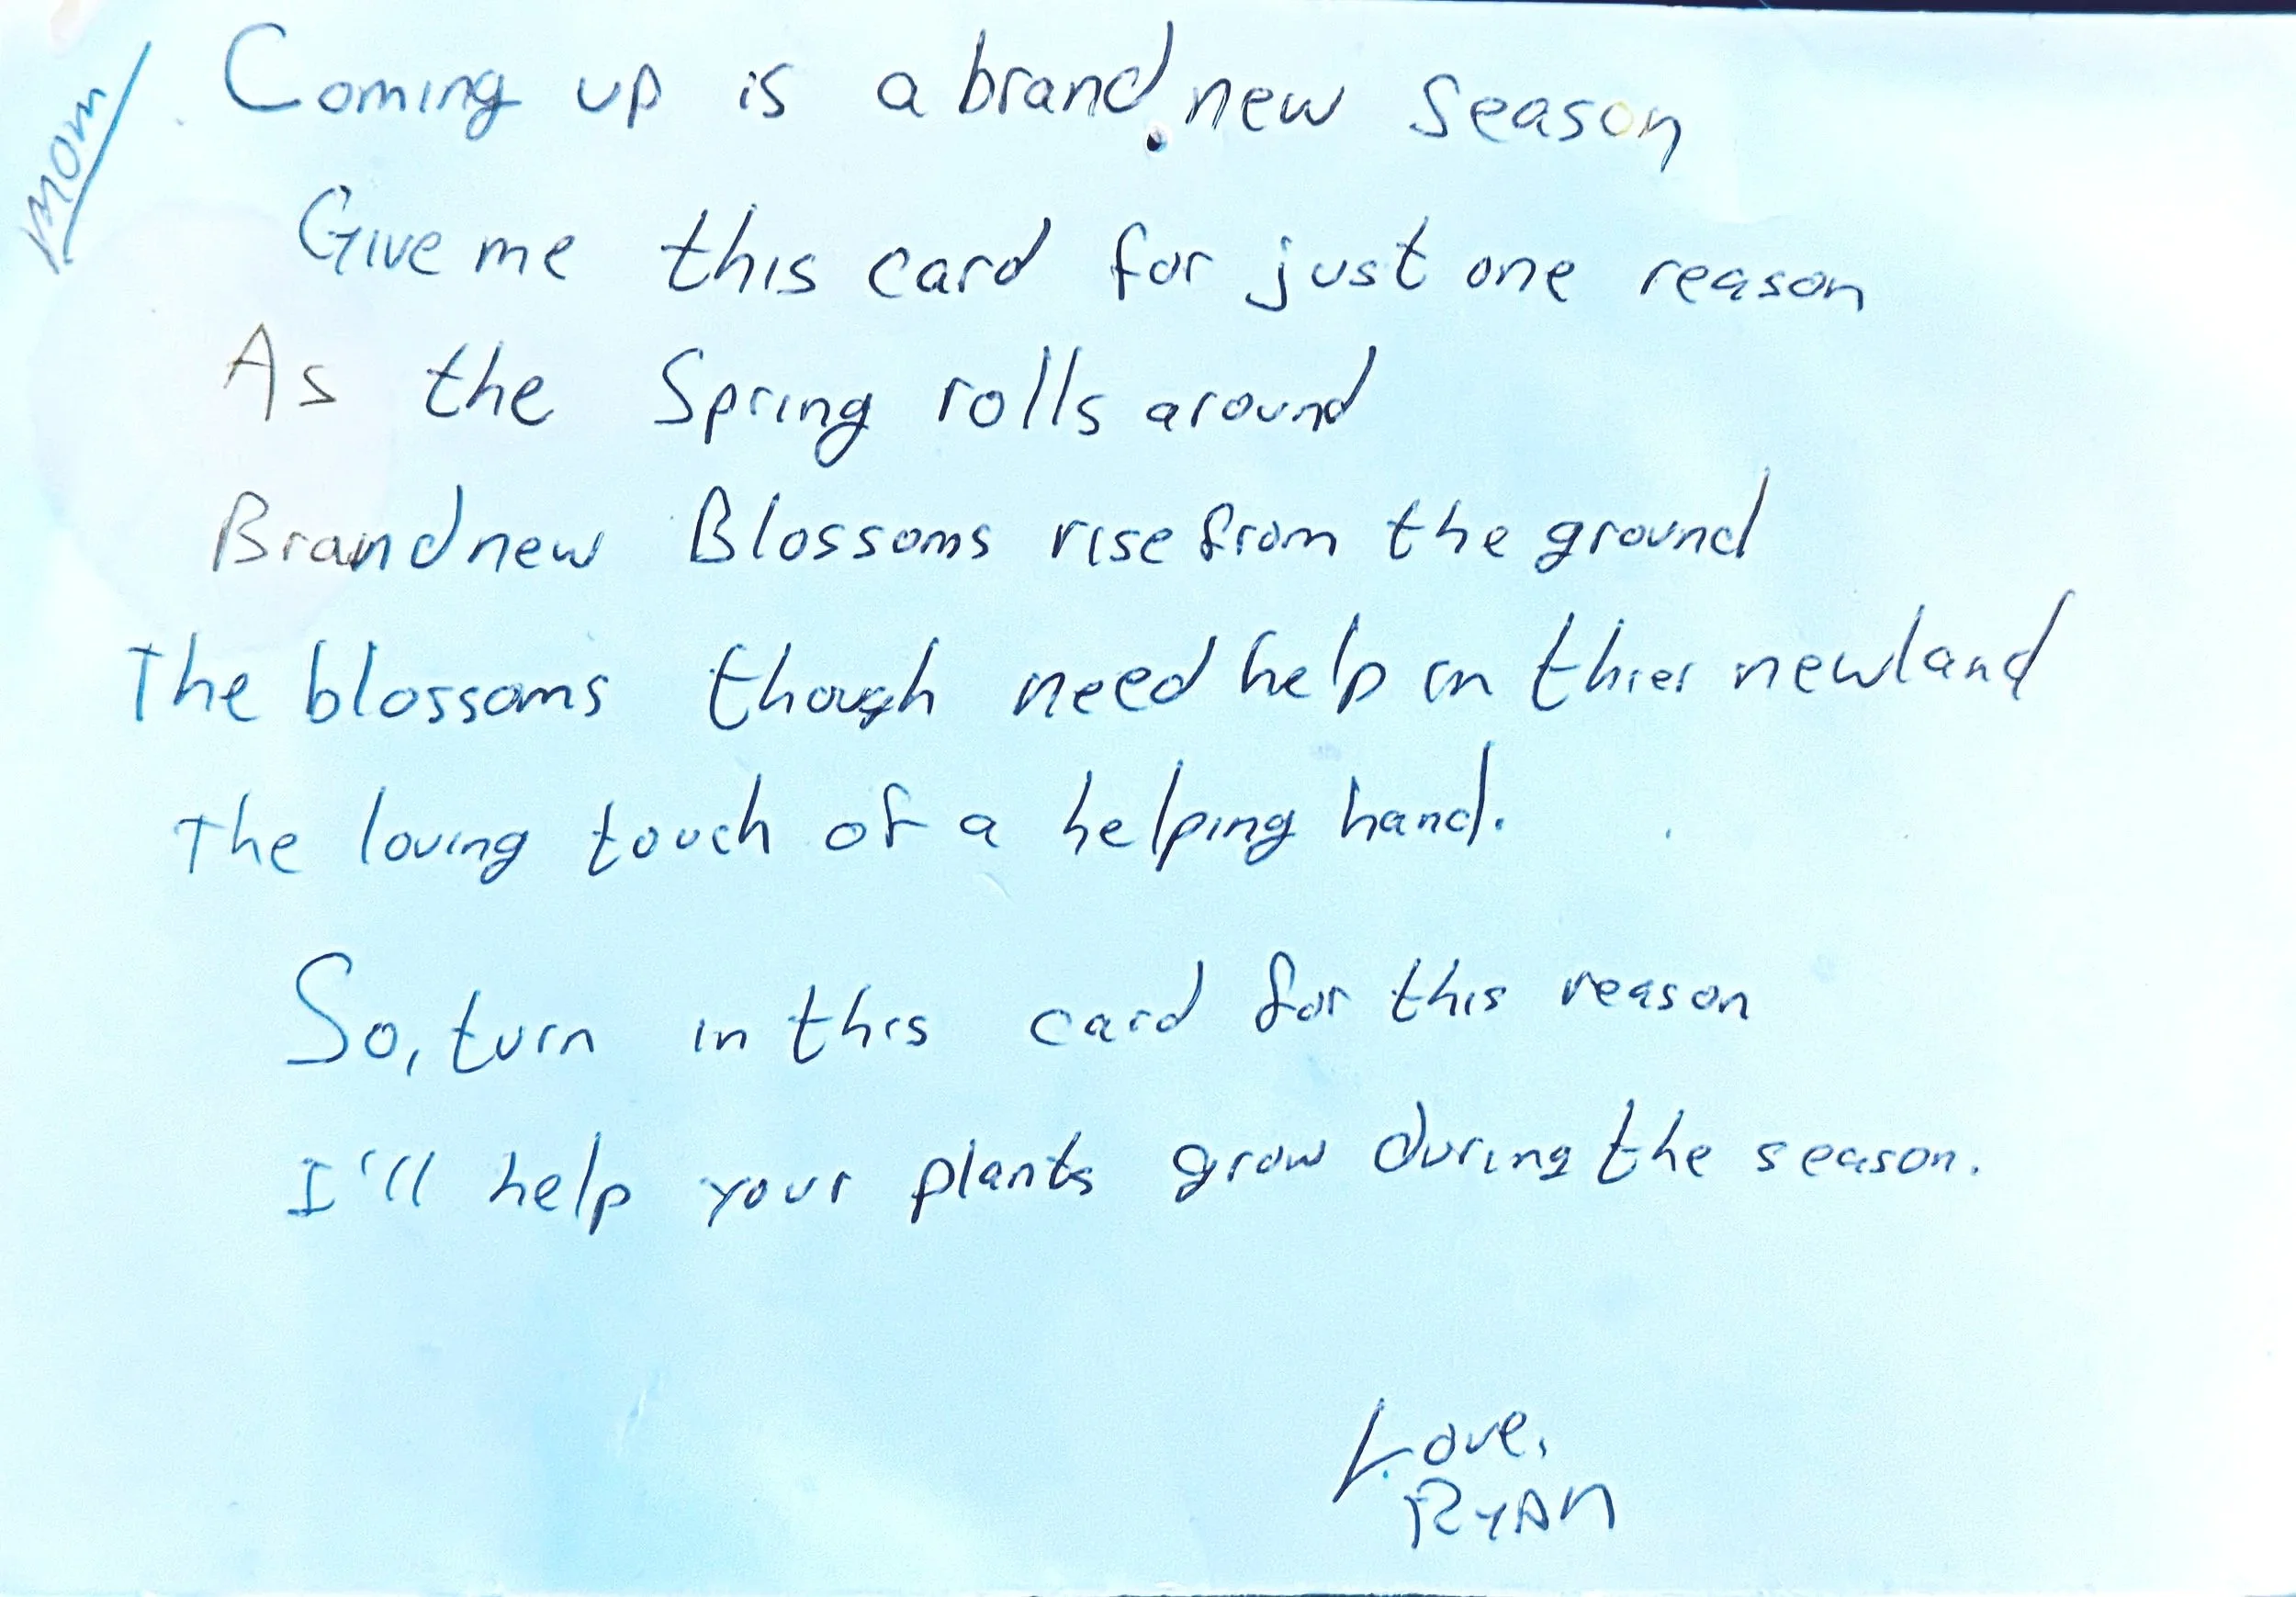 Mom
Coming up is a brand new season
Give me this card for just one reason
As the Spring rolls around
Brand new Blossoms rise from the ground
The blossoms though need help in thier new land
The loving touch of a helping hand.
So, turn in this card for this reason
I'll help your plants grow during the season.
Love,
RYAN